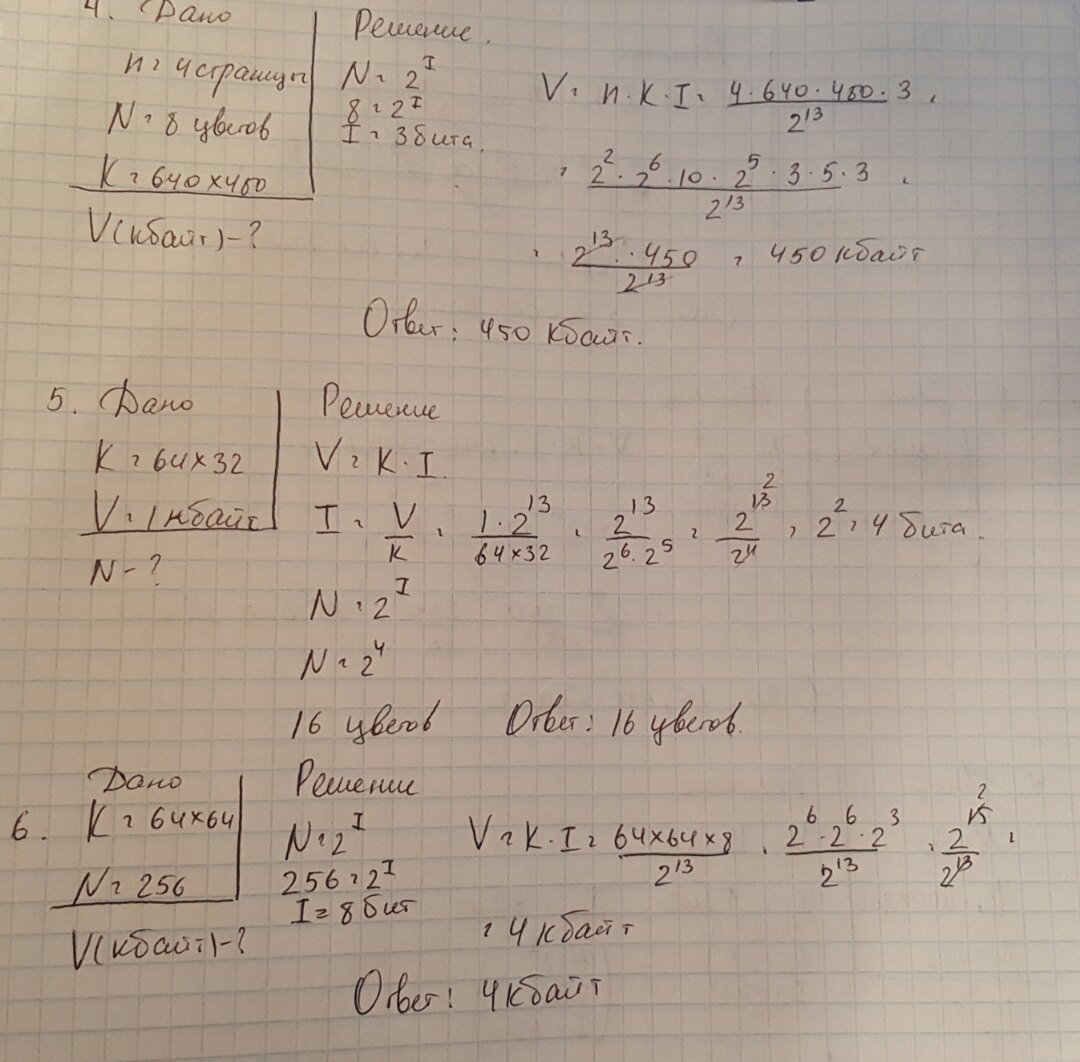 4. Дано
n = 4 страницы
N = 8 цветов
K = 640 x 480
V(кбайт) - ?
Решение.
N = 2^I
8 = 2^I
I = 3 бита.
V = n · K · I = 4 · 640 · 480 · 3 / 2^13 =
= 2^2 · 2^6 · 10 · 2^5 · 3 · 5 · 3 / 2^13 =
= 2^13 · 450 / 2^13 = 450 кбайт
Ответ: 450 кбайт.
5. Дано
K = 64 x 32
V = 1 кбайт
N - ?
Решение
V = K · I.
I = V / K = 1 · 2^13 / 64 x 32 = 2^13 / 2^6 · 2^5 = 2^13 / 2^11 = 2^2 = 4 бита.
N = 2^I
N = 2^4
16 цветов Ответ: 16 цветов.
6. Дано
K = 64 x 64
N = 256
V(кбайт) - ?
Решение
N = 2^I
256 = 2^I
I = 8 бит
V = K · I = 64 x 64 x 8 / 2^13 = 2^6 · 2^6 · 2^3 / 2^13 = 2^15 / 2^13 =
= 4 кбайт
Ответ: 4 кбайт